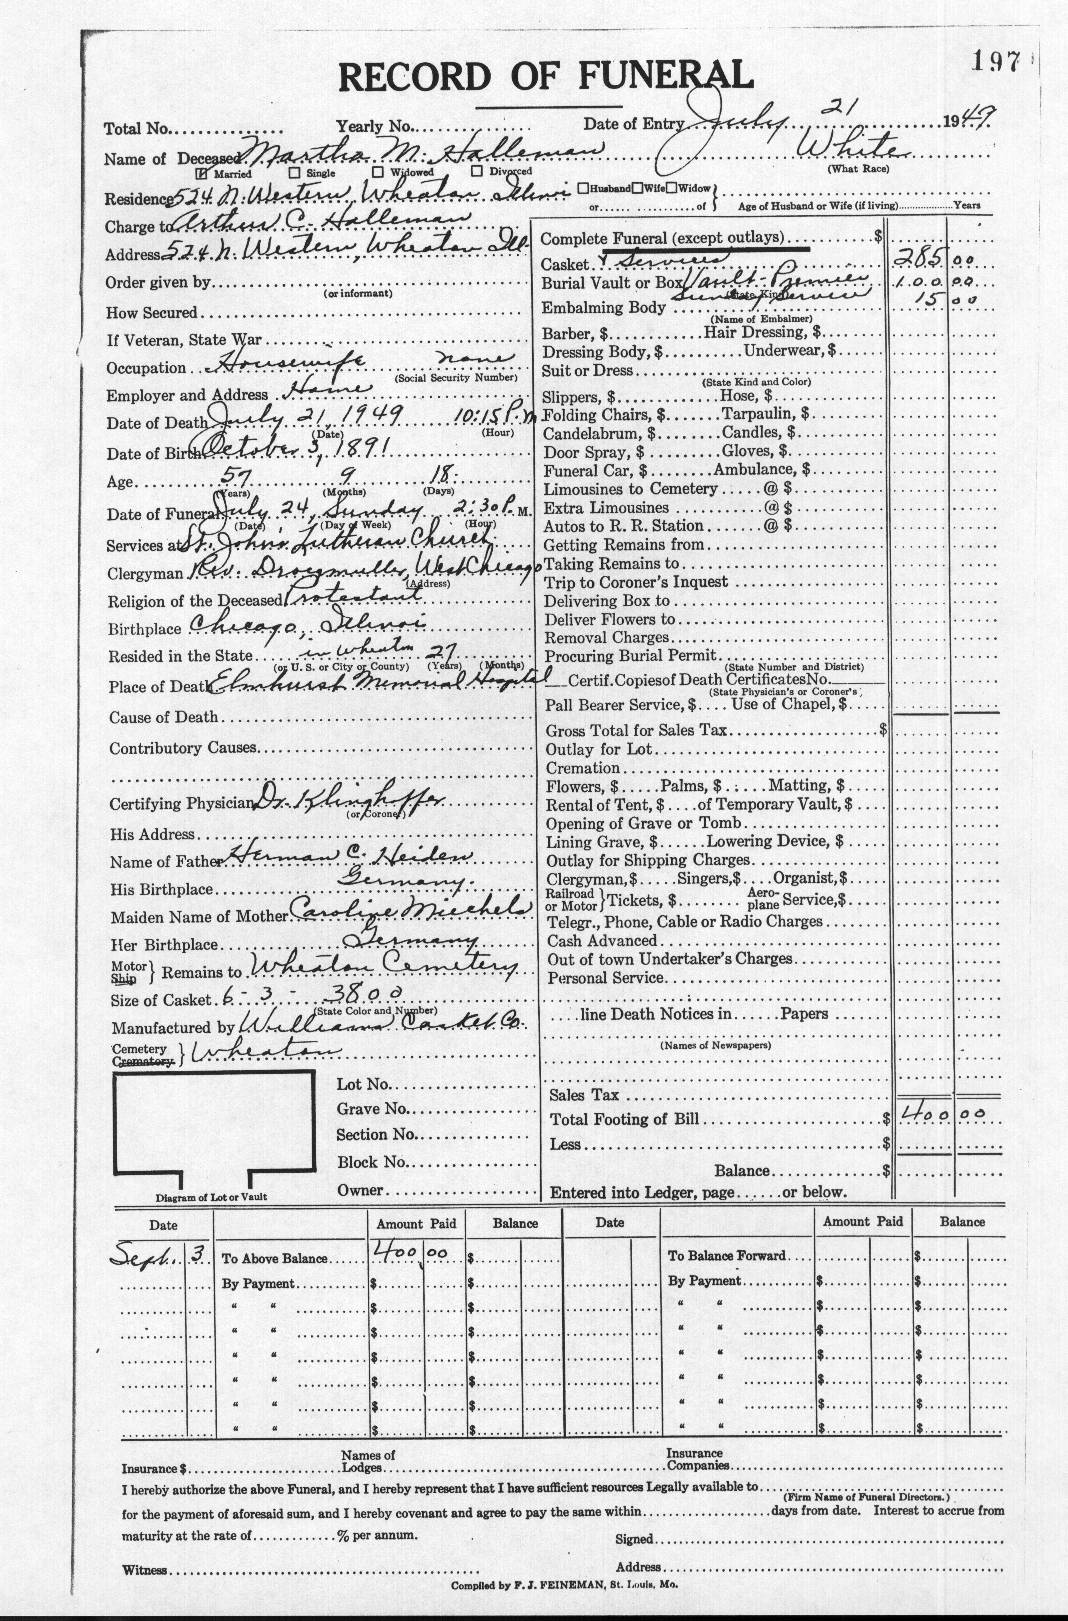 197
RECORD OF FUNERAL
Total No. Yearly No. Date of Entry July 21 1949
Name of Deceased Martha M. Halleman White
Married Single Widowed Divorced (What Race)
Residence 524 N. Western, Wheaton, Illinois Husband Wife Widow
or of Age of Husband or Wife (if living) Years
Charge to Arthur C. Halleman
Address 524 N. Western, Wheaton Ill.
Order given by
(or informant)
How Secured
If Veteran, State War
Occupation Housewife none
(Social Security Number)
Employer and Address Home
Date of Death July 21, 1949 10:15 P.M.
(Date) (Hour)
Date of Birth October 3, 1891
Age 57 9 18
(Years) (Months) (Days)
Date of Funeral July 24, Sunday 2:30 P. M.
(Date) (Day of Week) (Hour)
Services at St. John's Lutheran Church
Clergyman Rev. Droegmuller, West Chicago
(Address)
Religion of the Deceased Protestant
Birthplace Chicago, Illinois
Resided in the State in Wheaton 27
(or U. S. or City or County) (Years) (Months)
Place of Death Elmhurst Memorial Hospital
Cause of Death
Contributory Causes
Certifying Physician Dr. Klinghoffer
(or Coroner)
His Address
Name of Father Herman C. Heiden
His Birthplace Germany
Maiden Name of Mother Caroline Miechels
Her Birthplace Germany
Motor Ship } Remains to Wheaton Cemetery
Size of Casket 6 - 3 - 3800
(State Color and Number)
Manufactured by Williams Casket Co.
Cemetery Crematory } Wheaton
Lot No.
Grave No.
Section No.
Block No.
Owner
Diagram of Lot or Vault
Complete Funeral (except outlays) $
Casket & Services 285 00
Burial Vault or Box Vault - Premier 100 00
(State Kind)
Embalming Body Sunday Service 15 00
(Name of Embalmer)
Barber, $ Hair Dressing, $
Dressing Body, $ Underwear, $
Suit or Dress
(State Kind and Color)
Slippers, $ Hose, $
Folding Chairs, $ Tarpaulin, $
Candelabrum, $ Candles, $
Door Spray, $ Gloves, $
Funeral Car, $ Ambulance, $
Limousines to Cemetery @ $
Extra Limousines @ $
Autos to R. R. Station @ $
Getting Remains from
Taking Remains to
Trip to Coroner's Inquest
Delivering Box to
Deliver Flowers to
Removal Charges
Procuring Burial Permit
(State Number and District)
Certif. Copies of Death Certificates No.
(State Physician's or Coroner's)
Pall Bearer Service, $ Use of Chapel, $
Gross Total for Sales Tax $
Outlay for Lot
Cremation
Flowers, $ Palms, $ Matting, $
Rental of Tent, $ of Temporary Vault, $
Opening of Grave or Tomb
Lining Grave, $ Lowering Device, $
Outlay for Shipping Charges
Clergyman, $ Singers, $ Organist, $
Railroad or Motor } Tickets, $ Aeroplane Service, $
Telegr., Phone, Cable or Radio Charges
Cash Advanced
Out of town Undertaker's Charges
Personal Service
line Death Notices in Papers
(Names of Newspapers)
Sales Tax
Total Footing of Bill $ 400 00
Less $
Balance $
Entered into Ledger, page or below.
Date Amount Paid Balance Date Amount Paid Balance
Sept. 3 To Above Balance 400 00 $ To Balance Forward $
By Payment $ $ By Payment $ $
" " $ $ " " $ $
" " $ $ " " $ $
" " $ $ " " $ $
" " $ $ " " $ $
" " $ $ " " $ $
" " $ $ " " $ $
Insurance $ Names of Lodges Insurance Companies
I hereby authorize the above Funeral, and I hereby represent that I have sufficient resources Legally available to
(Firm Name of Funeral Directors.)
for the payment of aforesaid sum, and I hereby covenant and agree to pay the same within days from date. Interest to accrue from
maturity at the rate of % per annum. Signed
Witness Address
Compiled by F. J. FEINEMAN, St. Louis, Mo.